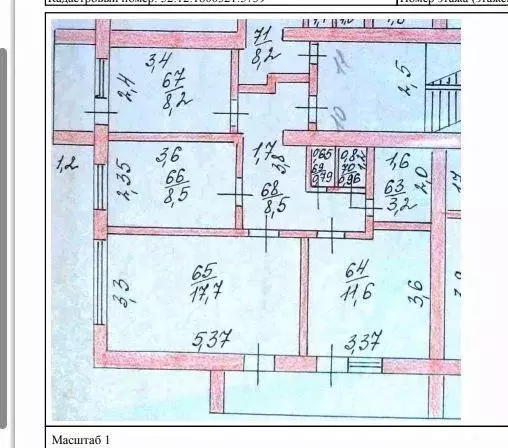 Кадастровый номер: 52:42:1800521:3759
71
8,2
3,4
67
8,2
2,4
11
10
2,5
1,2
3,6
66
8,5
2,35
1,7
3,8
68
8,5
0,65
69
0,79
0,8
70
0,96
1,2
1,6
63
3,2
2,0
17
65
17,7
3,3
5,37
64
11,6
3,6
3,37
Масштаб 1